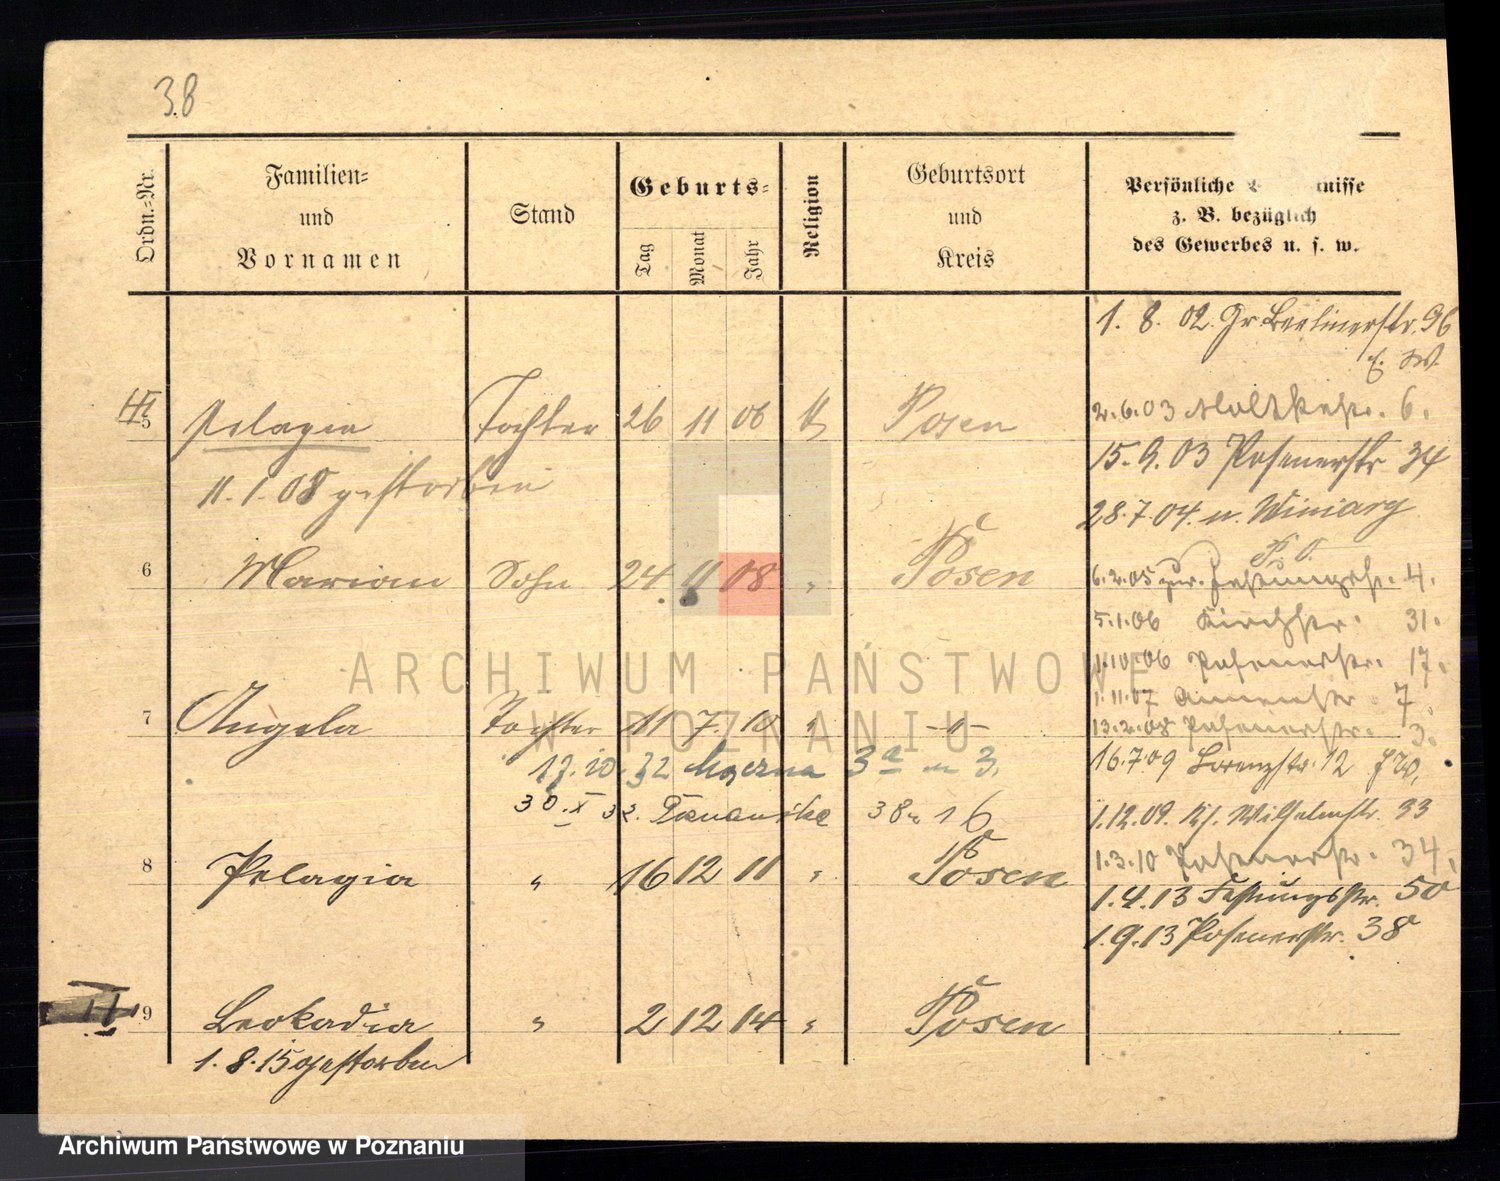 38
Ordn.-Nr.
Familien-
und
Vornamen
Stand
Geburts-
Tag
Monat
Jahr
Religion
Geburtsort
und
Kreis
Persönliche nisse
z. B. bezüglich
des Gewerbes u. s. w.
1. 8. 02. Gr. Berlinerstr. 96
2.6.03 Moltkestr. 6.
5 Pelagia Tochter 26 11 06 Posen
15.9.03 Posenerstr 34
11.1.08 gestorben
28.7.04. n. Winiary
P. O.
6 Marian Sohn 24. 11 08 " Posen
6.2.05 zur. Festungsstr. 4.
5.1.06 Kirchstr. 31.
1.10.06 Posenerstr. 17.
1.11.07 7.
7 Angela Tochter 11 7. 10 " -"-
13.2.08 Posenerstr. 3.
17.10.32 3a m 3.
16.7.09 Lorenzstr. 12
30.X 32. Poznańska 38 m 16
1.12.09. Kl. Wilhelmstr. 33
8 Pelagia " 16 12 11 " Posen
1.3.10 Posenerstr. 34.
1.4.13 Festungsstr. 50
1.9.13 Posenerstr. 38
II 9 Leokadia " 2 12 14 " Posen
1.8.15 gestorben
ARCHIWUM PAŃSTWOWE
W POZNANIU
Archiwum Państwowe w Poznaniu